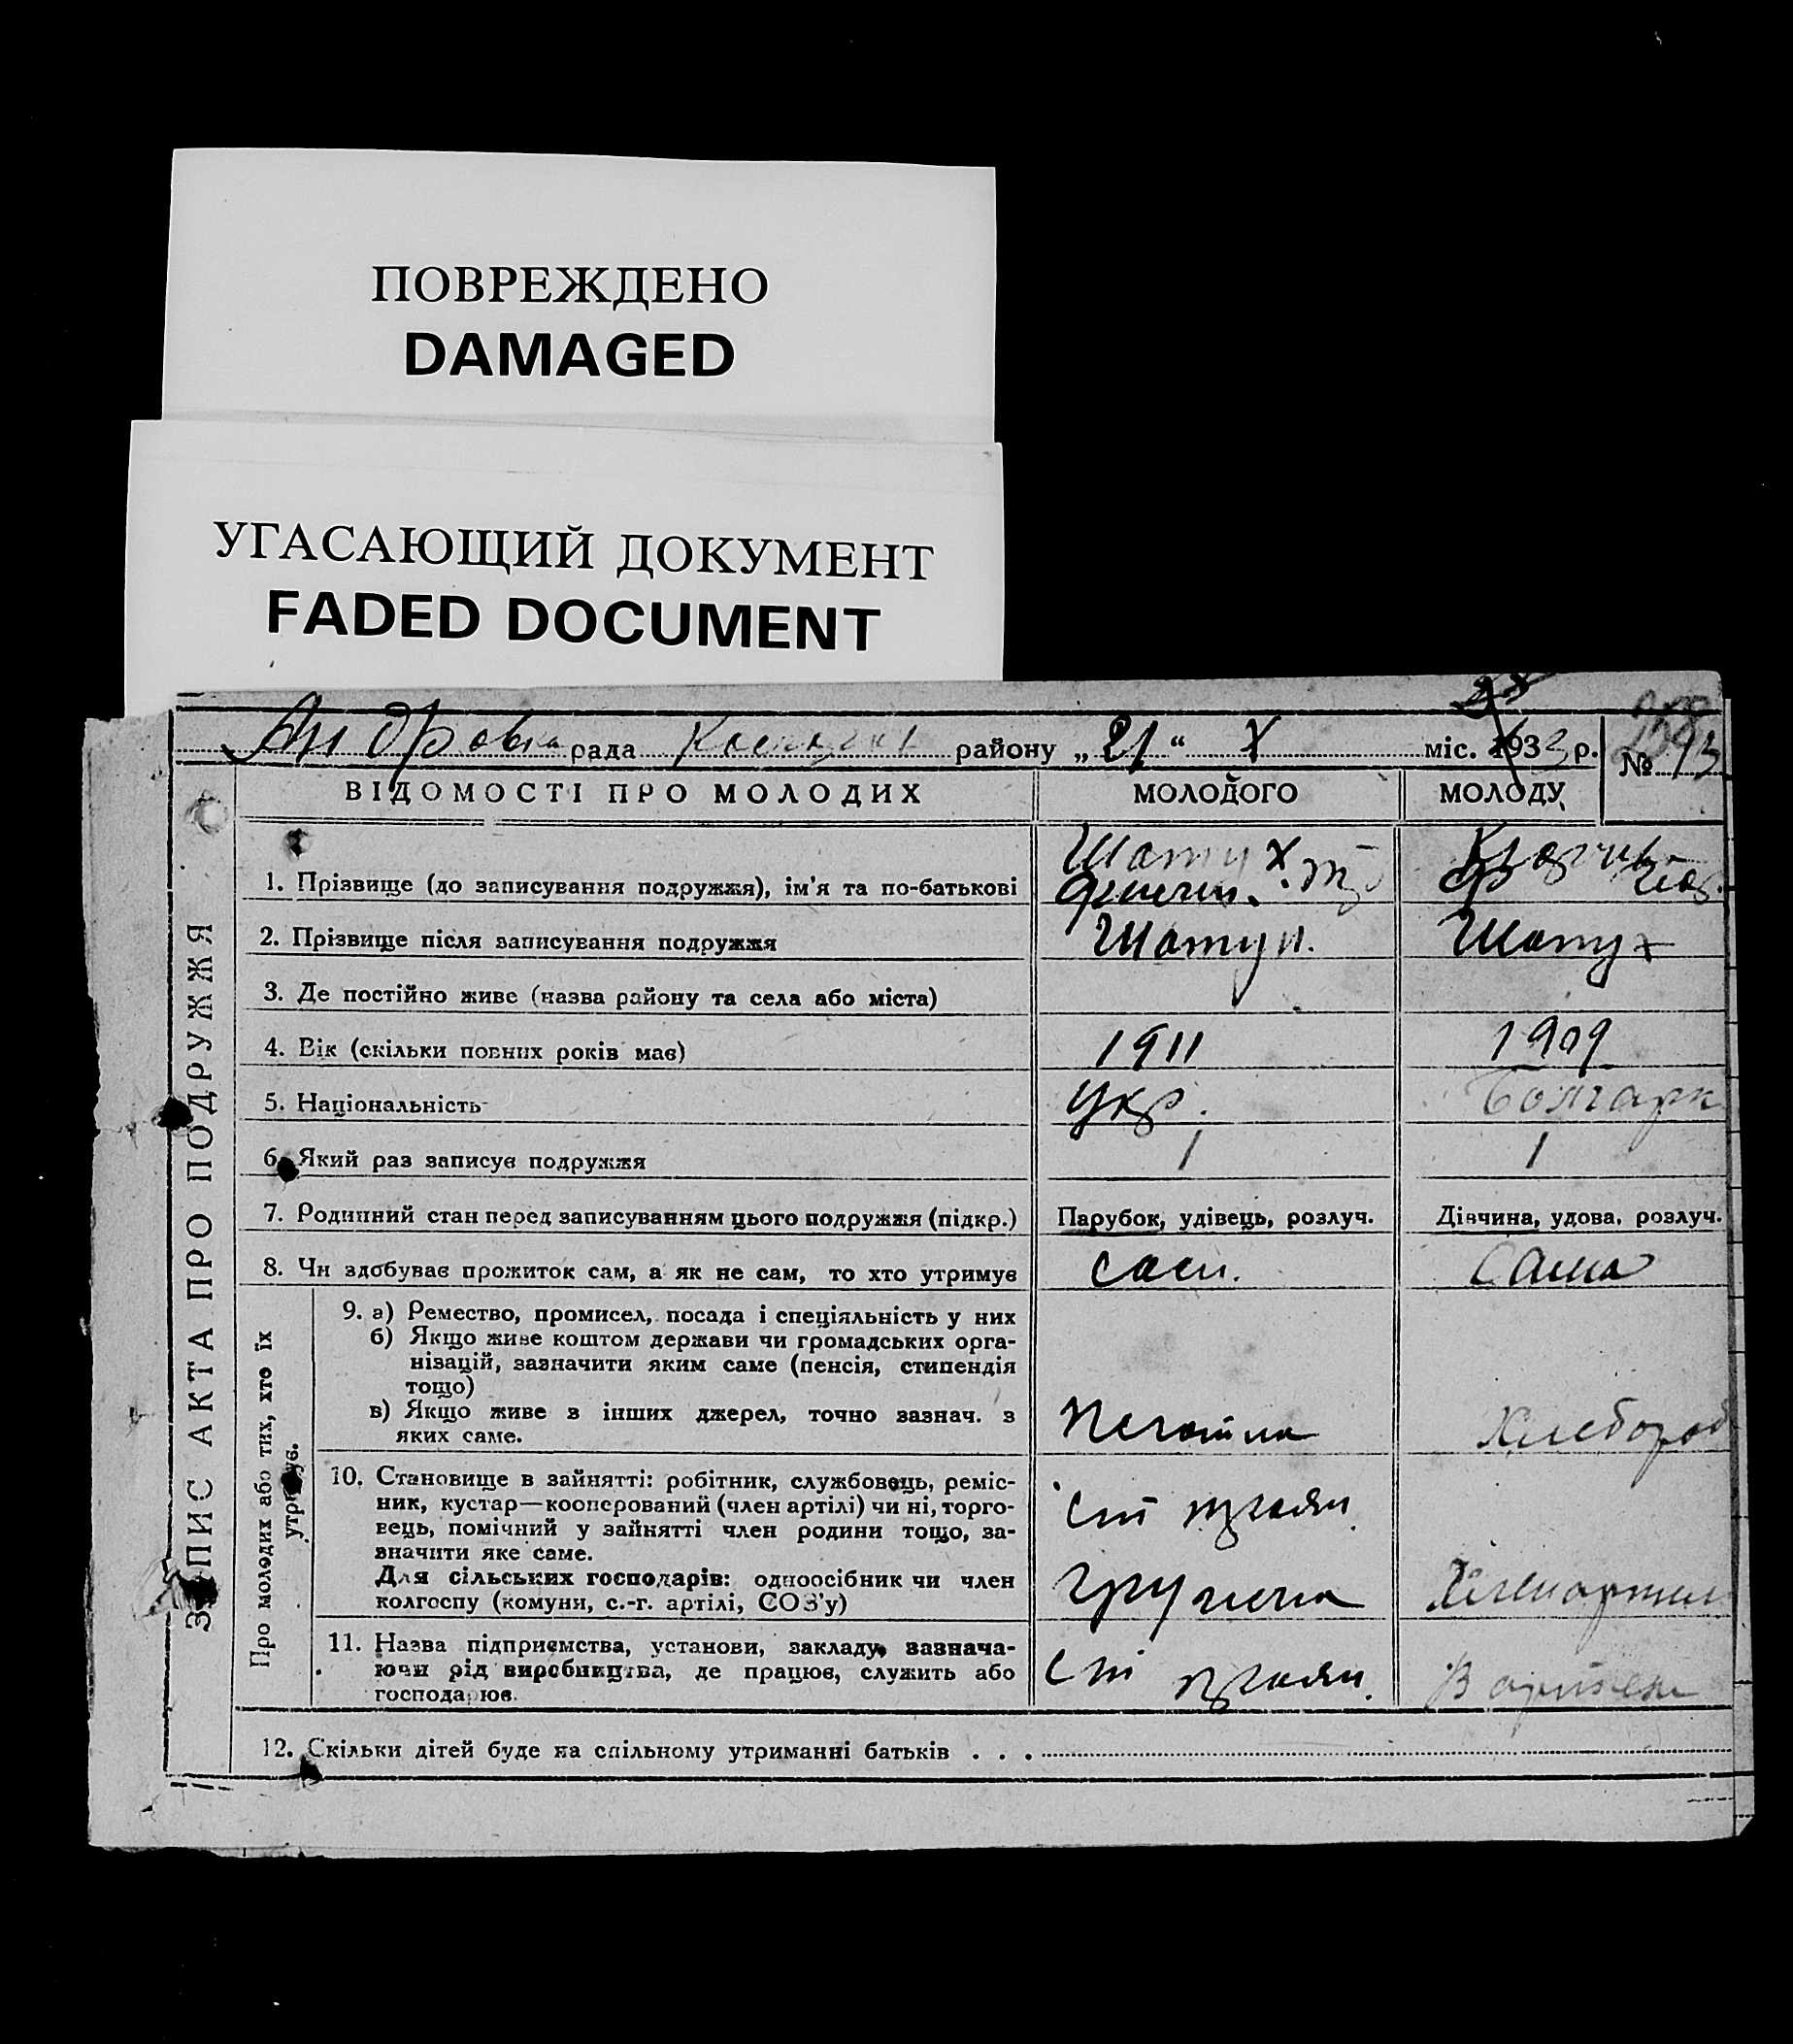 ПОВРЕЖДЕНО
DAMAGED
УГАСАЮЩИЙ ДОКУМЕНТ
FADED DOCUMENT
рада району „21“ X міс. 1933 р. № 13
ВІДОМОСТІ ПРО МОЛОДИХ МОЛОДОГО МОЛОДУ
ЗАПИС АКТА ПРО ПОДРУЖЖЯ
1. Прізвище (до записування подружжя), ім'я та по-батькові Шатух
2. Прізвище після записування подружжя Шатух Шатух
3. Де постійно живе (назва району та села або міста)
4. Вік (скільки повних років має) 1911 1909
5. Національність Укр. Болгарк
6. Який раз записує подружжя 1 1
7. Родинний стан перед записуванням цього подружжя (підкр.) Парубок, удівець, розлуч. Дівчина, удова, розлуч.
8. Чи здобуває прожиток сам, а як не сам, то хто утримує сам. сама
Про молодих або тих, хто їх
утримує.
9. а) Ремество, промисел, посада і спеціяльність у них
б) Якщо живе коштом держави чи громадських орга-
нізацій, зазначити яким саме (пенсія, стипендія
тощо)
в) Якщо живе з інших джерел, точно зазнач. з
яких саме. Хлебороб
10. Становище в зайнятті: робітник, службовець, реміс-
ник, кустар—кооперований (член артілі) чи ні, торго-
вець, помічний у зайнятті член родини тощо, за-
значити яке саме.
Для сільських господарів: одноосібник чи член
колгоспу (комуни, с.-г. артілі, СОЗ'у)
11. Назва підприємства, установи, закладу, зазнача-
ючи рід виробництва, де працює, служить або
господарює.
12. Скільки дітей буде на спільному утриманні батьків . . .